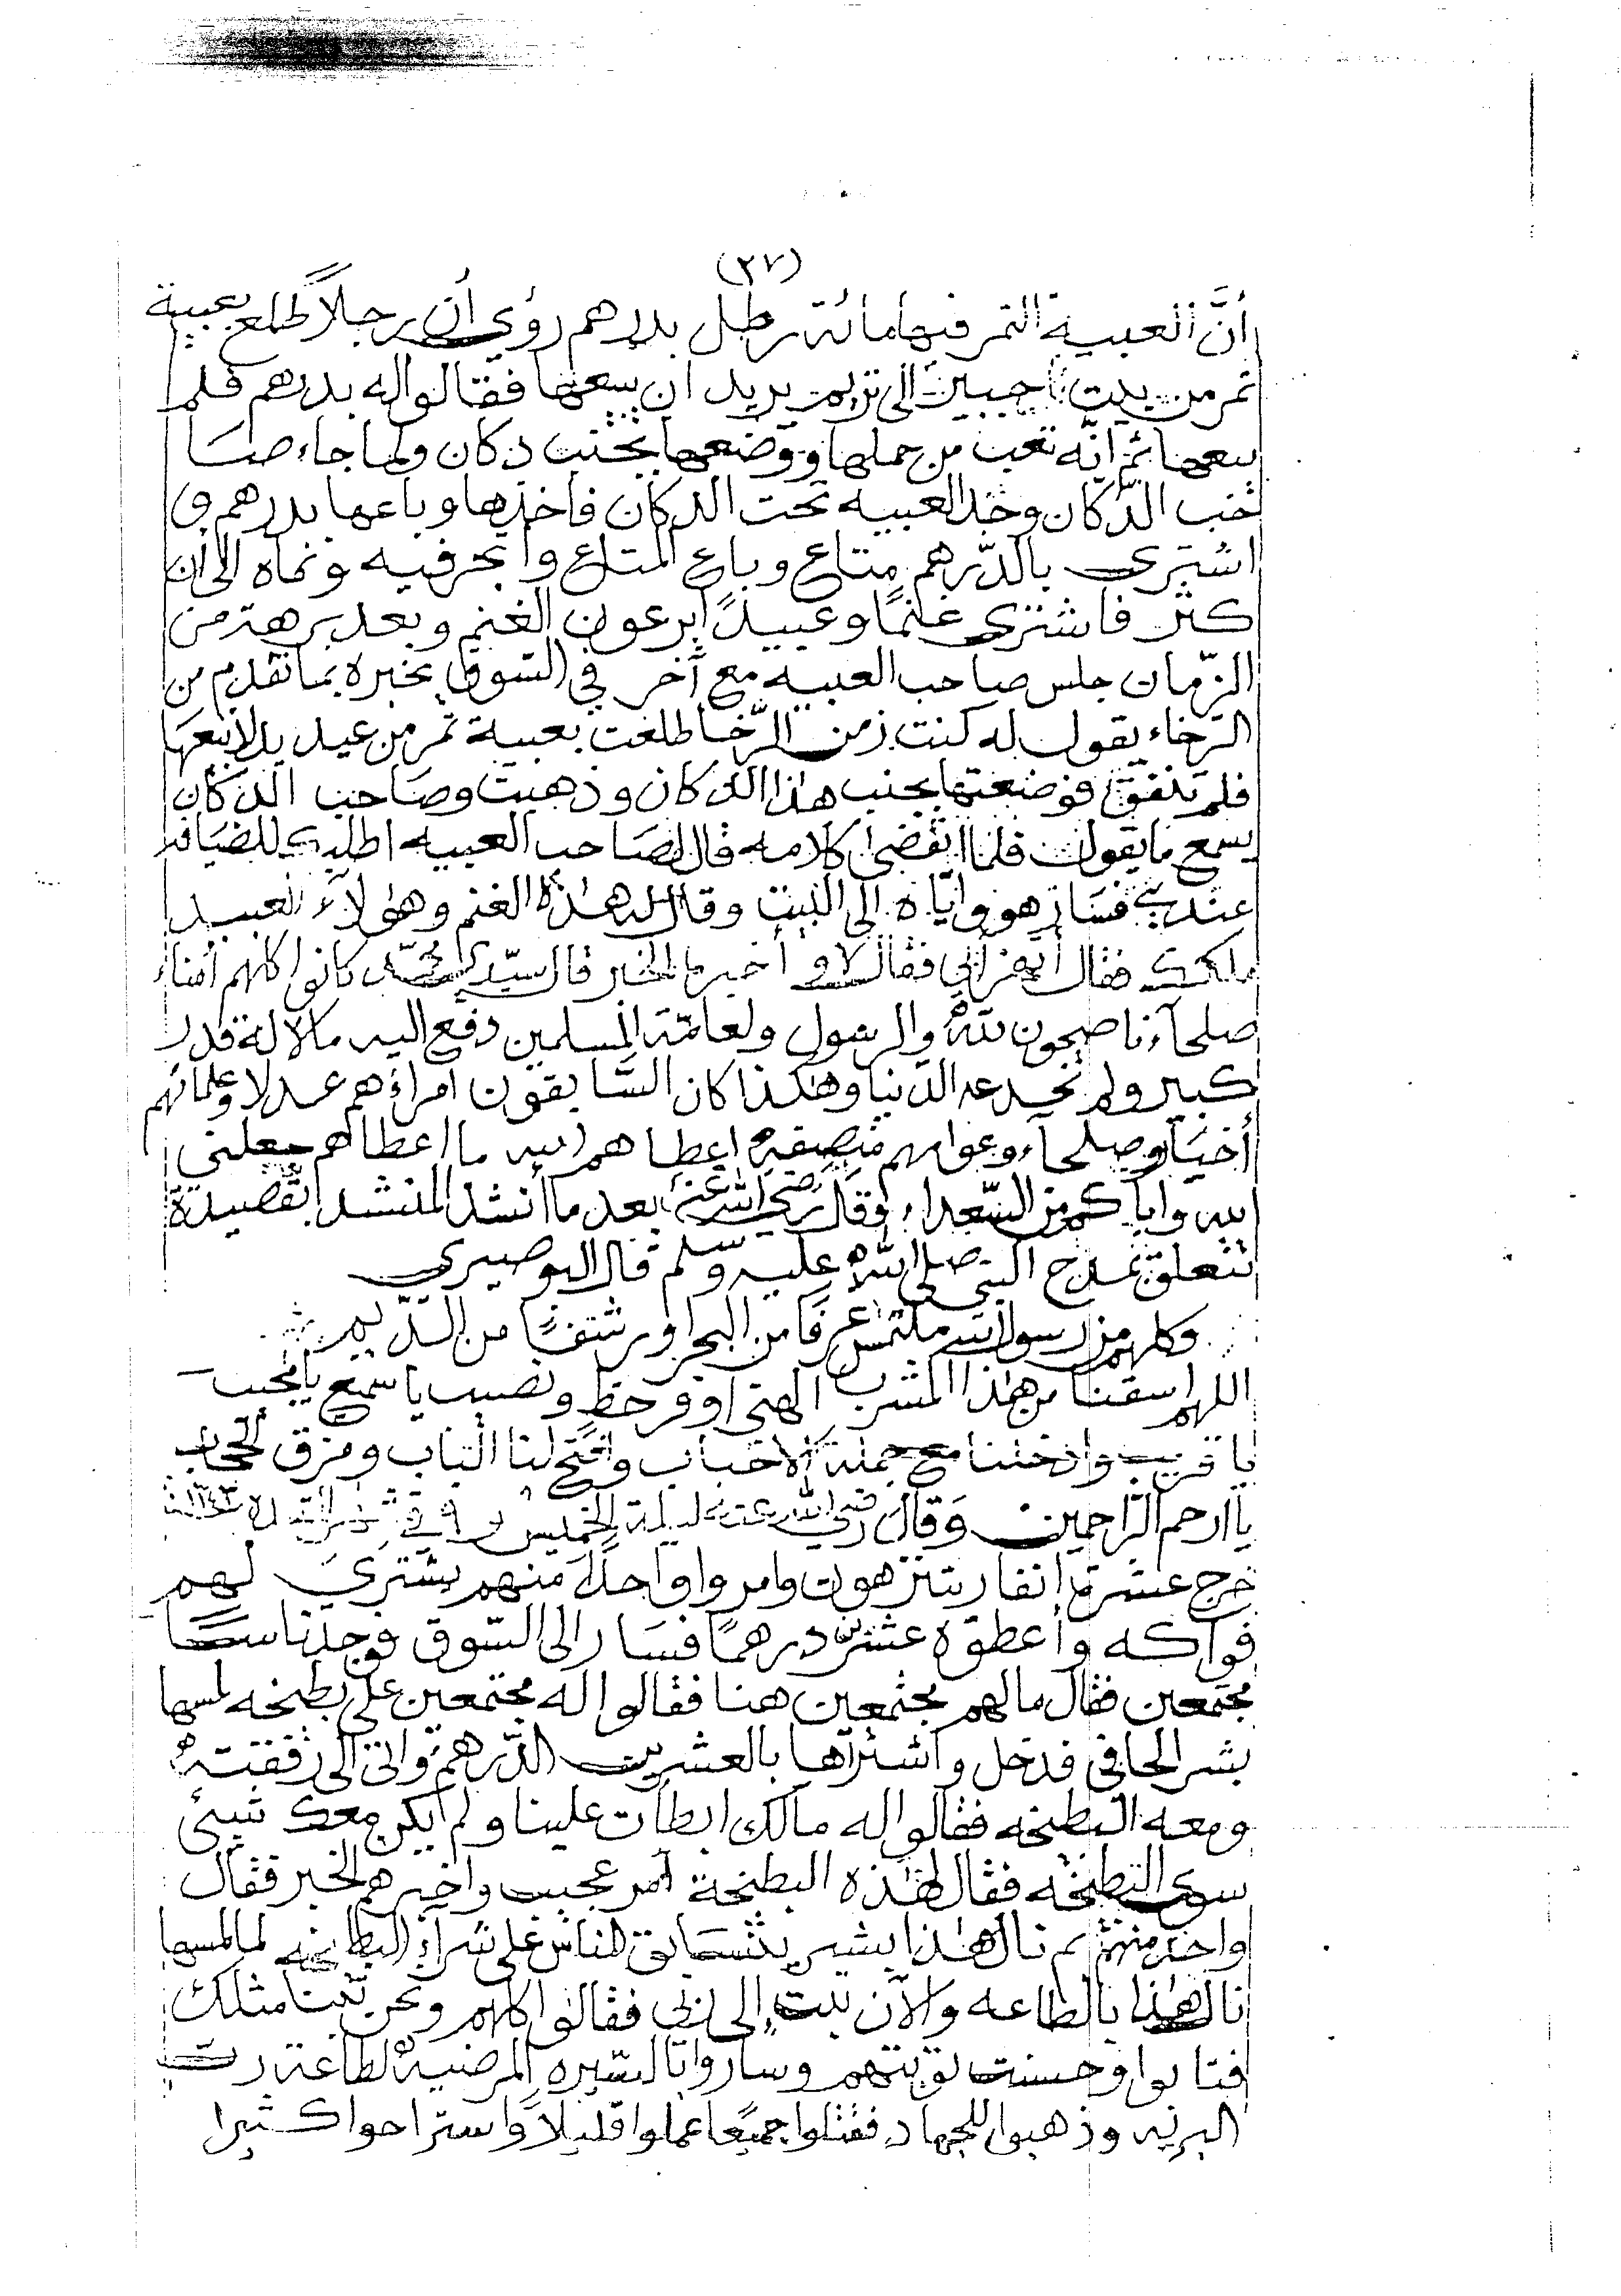 (٣٧)
أنَّ العبية التمر فيها مائة رطل بدرهم رؤي أن رجلاً طلع بعبية
تمر من بيت جبير الى تريم يريد ان يبيعها فقالوا له بدرهم فلم
يبعها ثم انّه تعب من حملها ووضعها بجنب دكان ولما جاء صا
حب الدّكان وجد العبيه تحت الدكان فاخذها وباعها بدرهم و
اشترى بالدّرهم متاع وباع المتاع واتجر فيه ونماه الى ان
كثر فاشترى غنمًا وعبيدًا يرعون الغنم وبعد برهة من
الزّمان جلس صاحب العبيه مع آخر في السّوق يخبره بما تقدم من
الرخاء يقول له كنت زمن الرّخا طلعت بعبية تمر من عيديد لابيعها
فلم تنفق فوضعتها بجنب هذا الدكان وذهبت وصاحب الدكان
يسمع ما يقول فلما انقضى كلامه قال لصاحب العبيه اطلبك للضيافة
عندي فسار هو وايّاه الى البيت وقال له هذه الغنم وهؤلاء العبيد
ملكك فقال أتهزأ بي فقال لا و أخبره بالخبر قال سيّدي محمّد كانوا كلهم أمناء
صلحآء ناصحون لله والرسول ولعامّة المسلمين دفع اليه مالا له قدر
كبير ولم تخدعه الدنيا وهكذا كان السّابقون امراؤهم عدلا وعلمائهم
أخيار وصلحآء وعوامهم منصفه اعطاهم الله ما اعطاهم جعلني
الله واياكم من السّعداء وقال رضي الله عنه بعد ما أنشد المنشد بقصيدة
تتعلق بمدح النبي صلى الله عليه وسلم قال البوصيري
وكلهم من رسول الله ملتمس غرفًا من البحر او رشفًا من الدّيم
اللهم اسقنا من هذا المشرب الهني اوفر حظٍ ونصيب يا سميع يا مجيب
يا قريب وادخلنا مع جملة الاحباب وافتح لنا الباب ومزق الحجاب
يا ارحم الرّاحمين وَقالَ رضي الله عنه ليلة الخميس ٩ في
خرج عشرة انفار يتنزهون وامروا واحدًا منهم يشتريَ لهم
فواكه وأعطوه عشرين درهمًا فسار الى السّوق فوجد ناسًا
مجتمعين فقال مالهم مجتمعين هنا فقالوا له مجتمعين على بطيخه لمسها
بشر الحافي فدخل واشتراها بالعشرين الدّرهم واتى الى رفقته
ومعه البطيخه فقالوا له مالك ابطأت علينا ولم يكن معك شيئ
سوى البطيخه فقال لهذه البطيخة أمر عجيب واخبرهم الخبر فقال
واحد منهم بم نال هذا بشر يتسابق الناس على شرآء البطيخه لما لمسها
نال هذا بالطاعه والآن تبت إلى ربي فقالوا كلهم ونحن تبنا مثلك
فتابوا وحسنت توبتهم وساروا بالسّيره المرضيه لطاعة رب
البريه وذهبوا للجهاد فقتلوا جميعًا عملوا قليلاً واستراحوا كثيرا